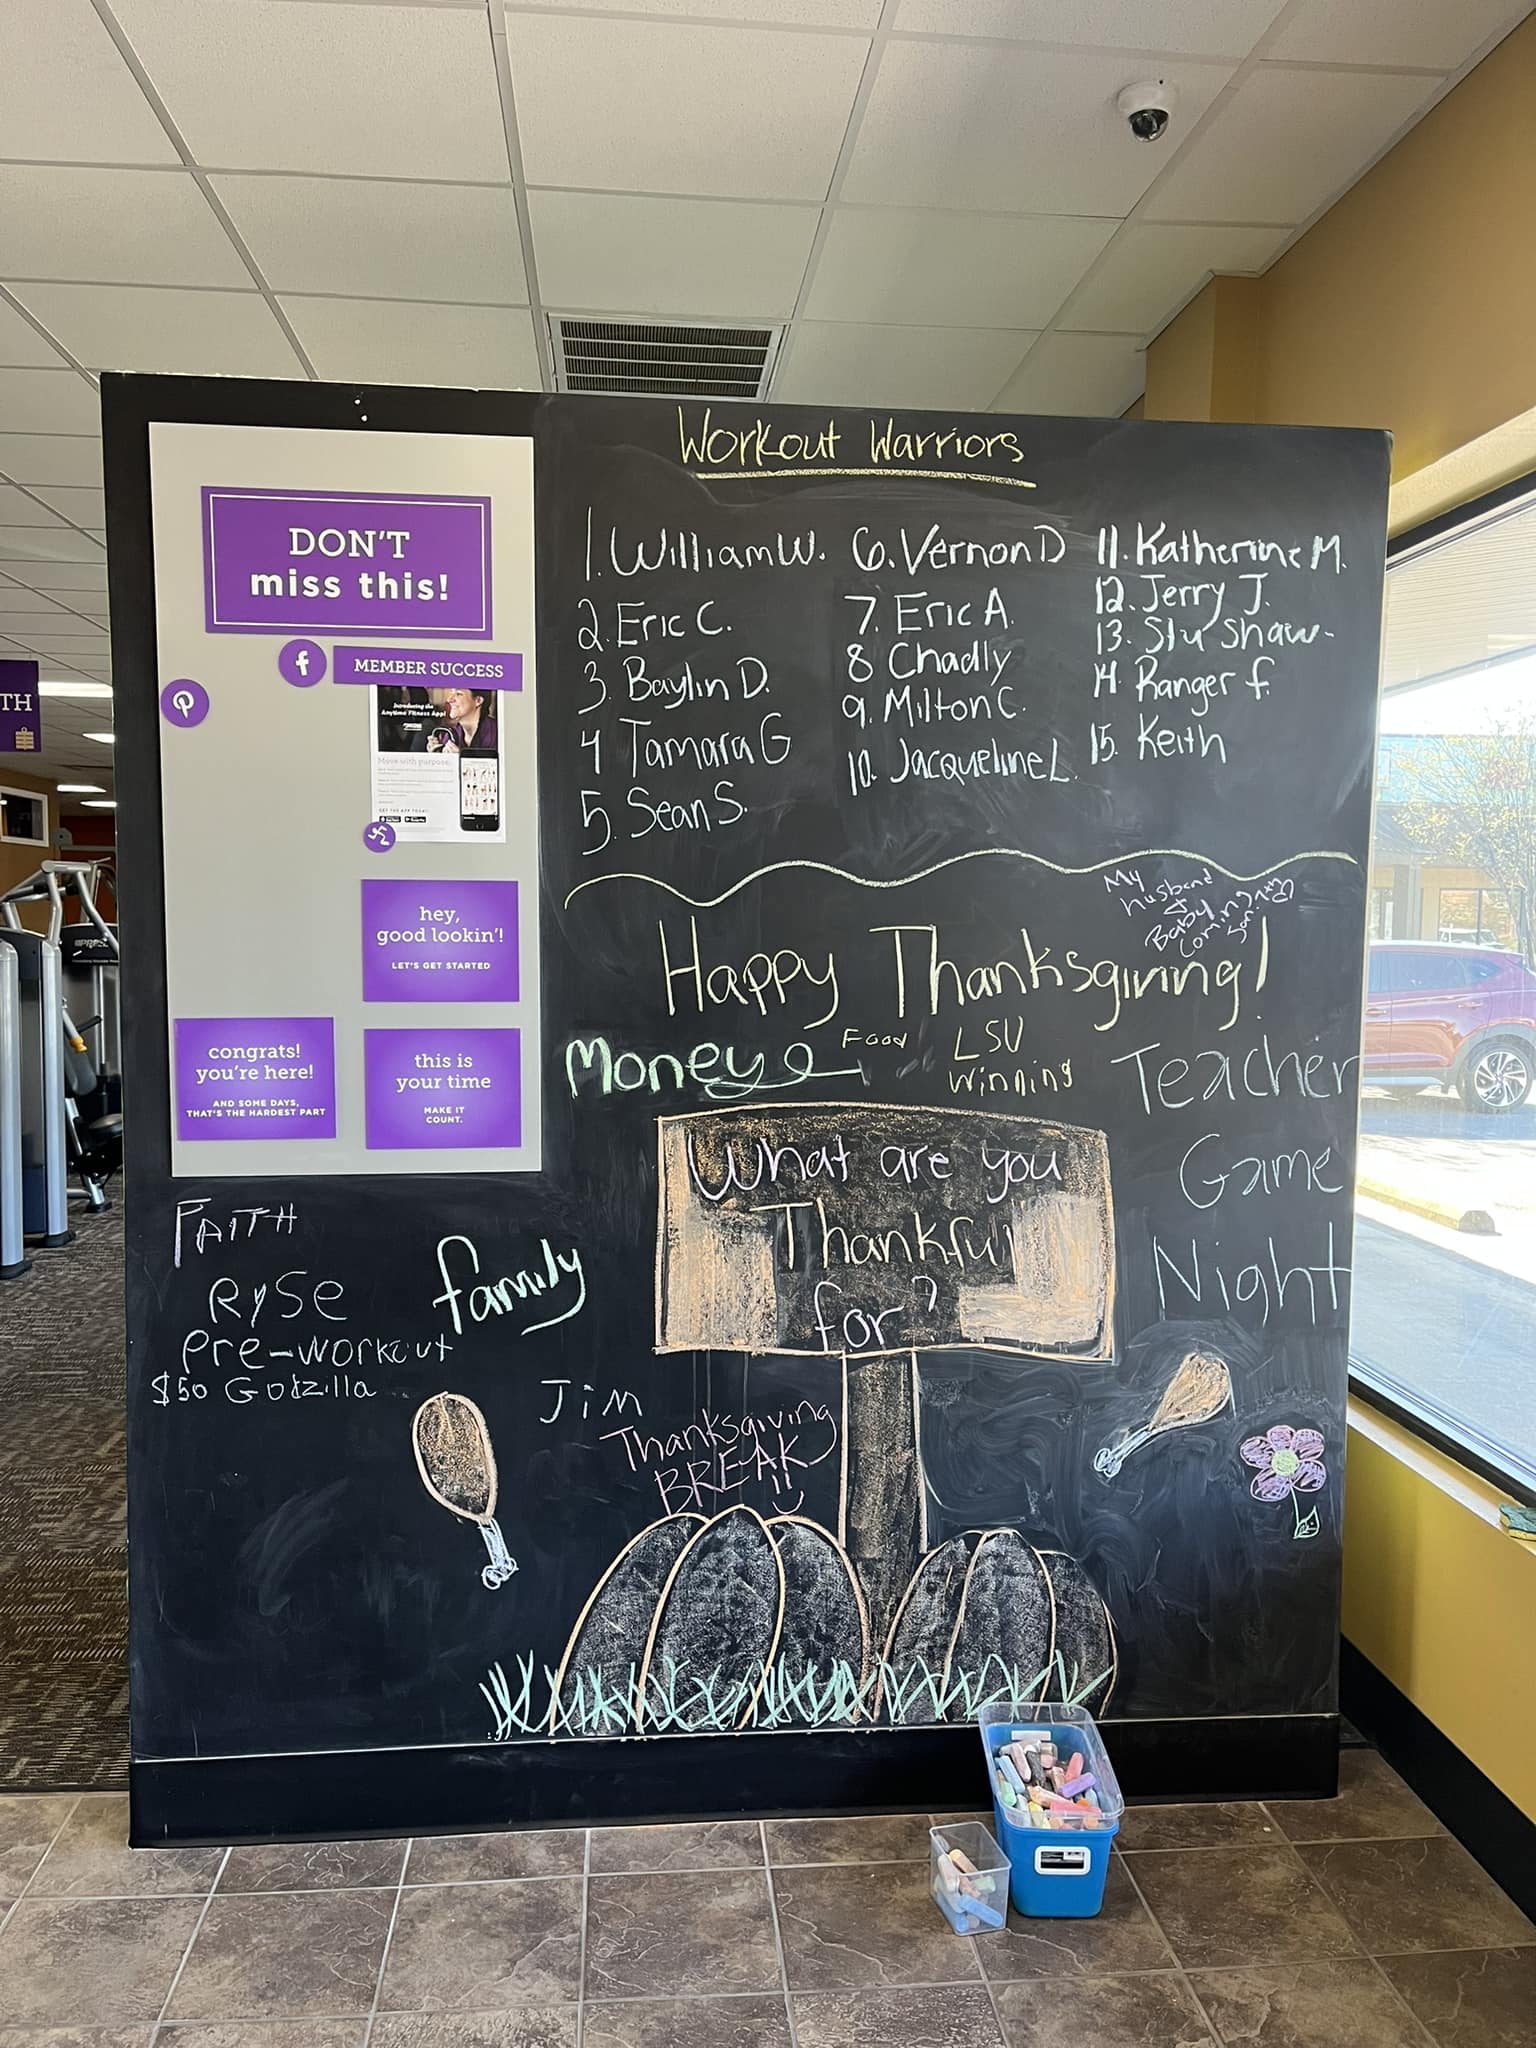 Workout Warriors
1. William W.
2. Eric C.
3. Baylin D.
4 Tamara G
5. Sean S.
6. Vernon D
7. Eric A.
8 Chadly
9. Milton C.
10. Jacqueline L.
11. Katherine M.
12. Jerry J.
13. Stu Shaw-
14. Ranger f.
15. Keith
DON'T
miss this!
MEMBER SUCCESS
Introducing the
Anytime Fitness App!
Move with purpose.
GET THE APP TODAY
hey,
good lookin'!
LET'S GET STARTED
congrats!
you're here!
AND SOME DAYS,
THAT'S THE HARDEST PART
this is
your time
MAKE IT
COUNT.
TH
My
husband
&
Baby
coming
soon
Happy Thanksgiving!
Money
Food
LSU
Winning
Teacher
Game
Night
What are you
Thankful
for?
FAITH
RySe
Pre-workout
$50 Godzilla
family
Jim
Thanksgiving
BREAK!!